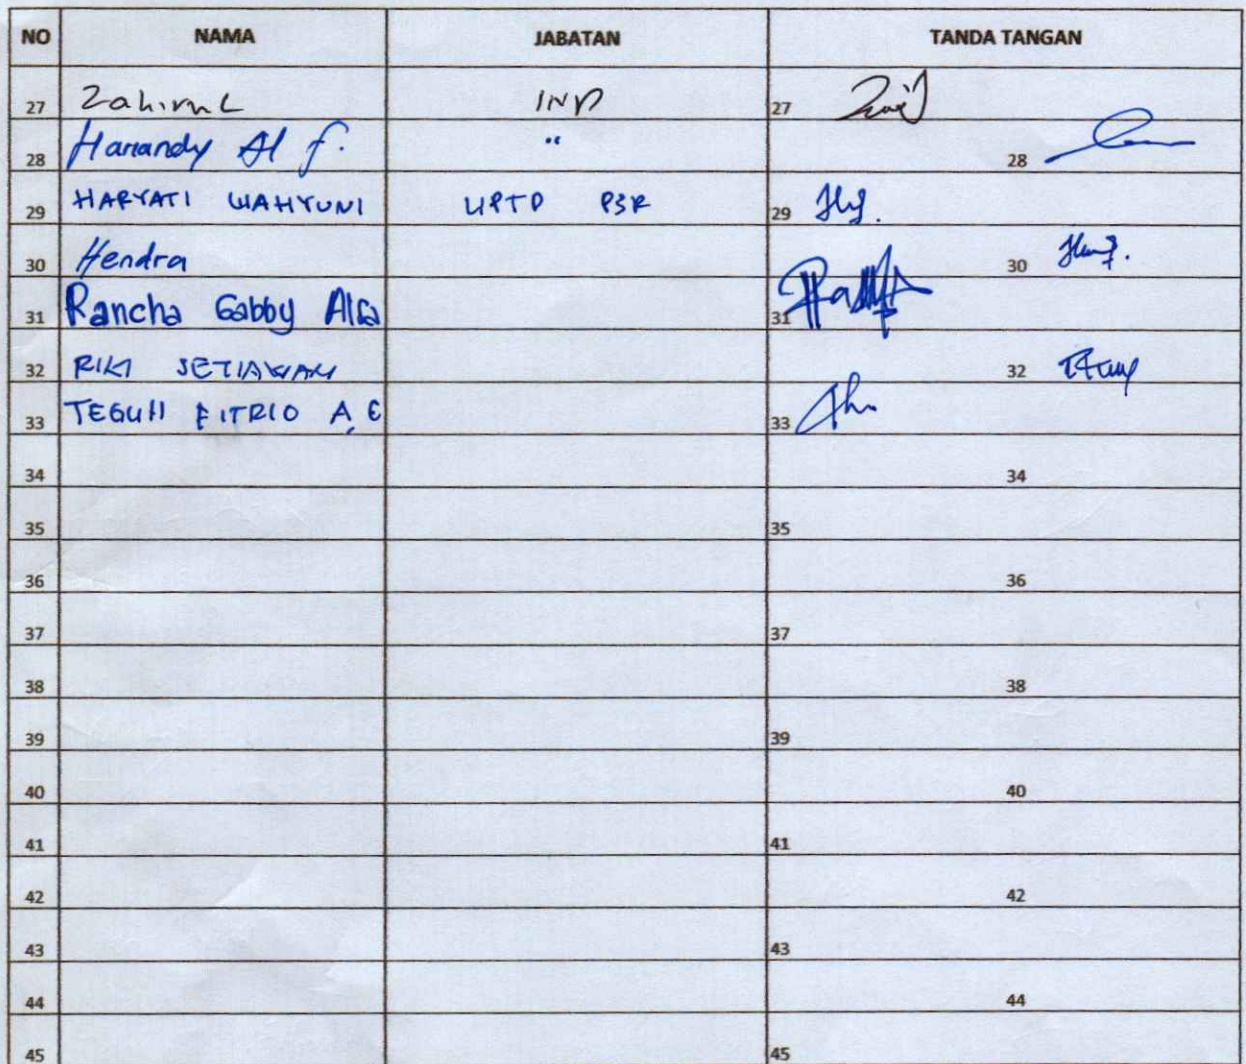 NO NAMA JABATAN TANDA TANGAN
27 Zahirul 27
28 Hanandy Al f. " 28
29 HARYATI WAHYUNI UPTD PSR 29
30 Hendra 30
31 Rancha Gabby Alfa 31
32 RIKI SETIAWAN 32
33 TEGUH FITRIO A, E 33
34 34
35 35
36 36
37 37
38 38
39 39
40 40
41 41
42 42
43 43
44 44
45 45